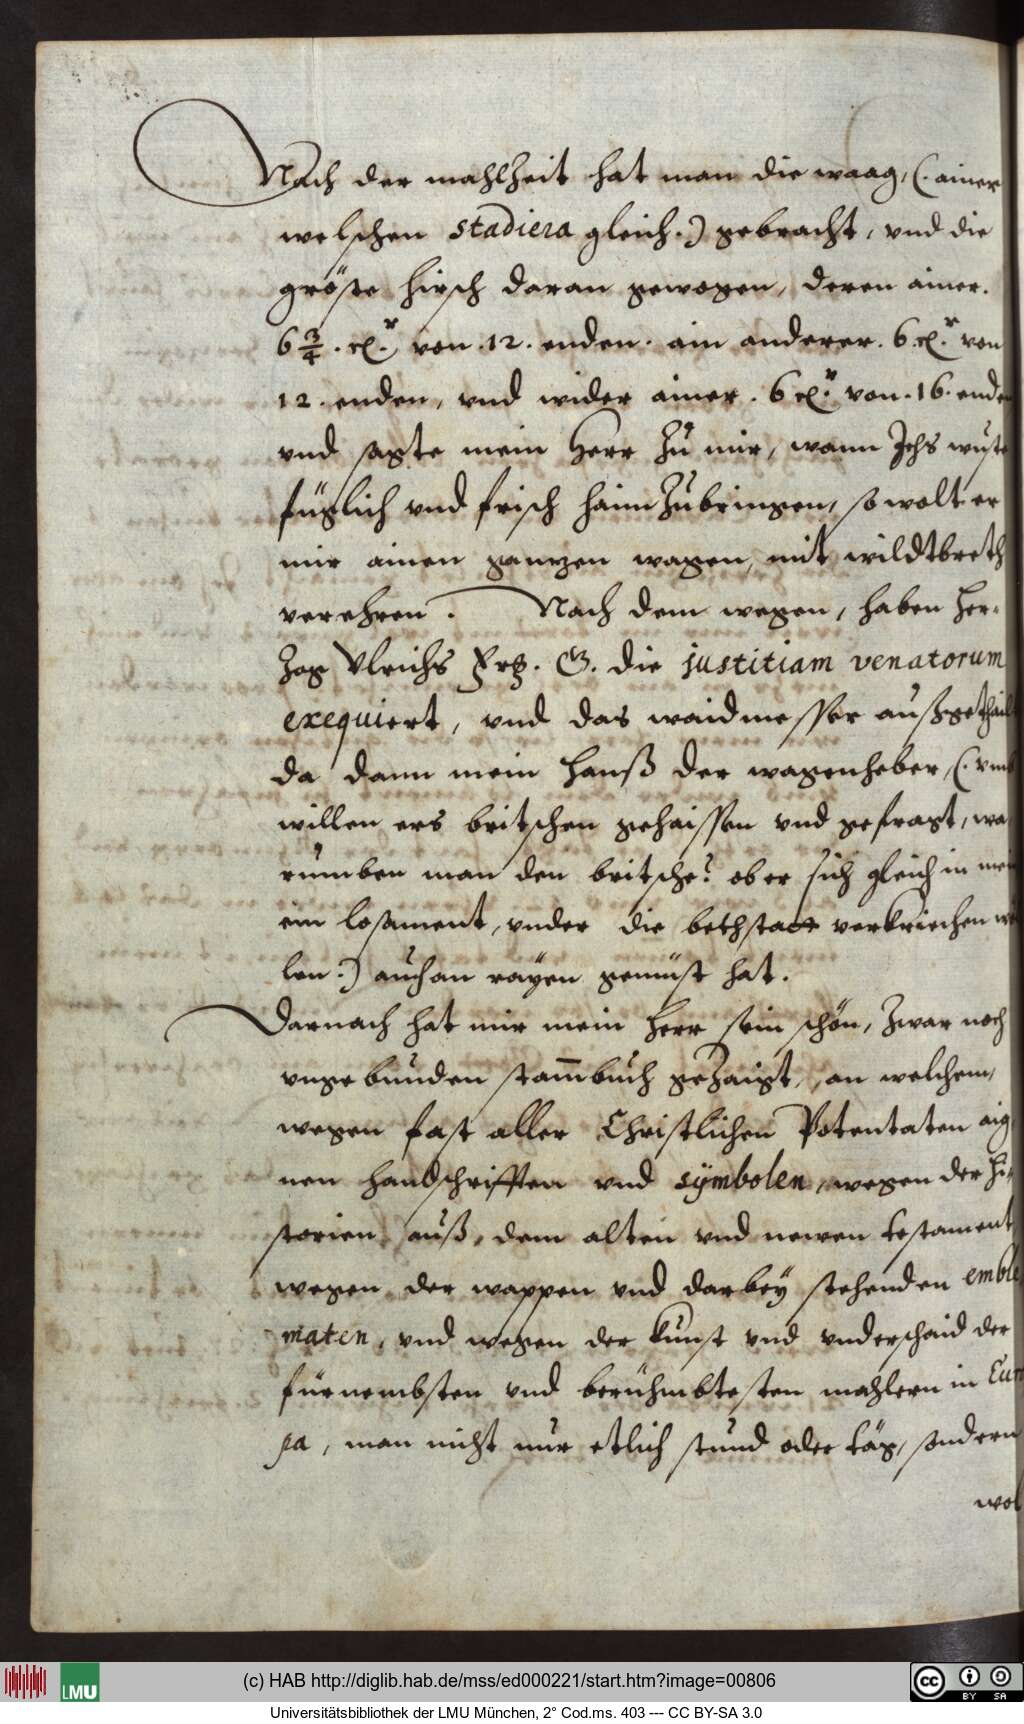 Nach der mahlzeit hat man die waag, (. ainer
welschen stadiera gleich.) gebracht, vnd die
gröste hirsch daran gewogen, deren ainer.
6 3/4 . von .12. enden. ain anderer. 6 von
12. enden, vnd wider ainer. 6 von .16. enden
vnd sagte mein Herr zů mir, wann Ichs wuste
füglich vnd frisch haim zůbringen, so wolt er
mir ainen gantzen wagen, mit wildtbreth
verehren. Nach dem wegen, haben Her-
zog Vlrichs Frg. G. die justitiam venatorum
exequiert, vnd das waidmesser außgethailt
da dann mein Hanß der wagenheber, (. vmb
willen ers britschen gehaissen vnd gefragt, wa
rumben man den britsche? ob er sich gleich in mei
em losament, vnder die bethstatt verkriechen wöl
len.) auch an rayen gemüst hat.
Darnach hat mir mein Herr sein schön, zwar noch
vngebunden stam̄buch gezaigt, an welchem,
wegen fast aller Christlichen Potentaten aig
nen handschrifften vnd sÿmbolen, wegen der Hi-
storien auß, dem alten vnd newen testament
wegen der wappen vnd darbeÿ stehenden emble
maten, vnd wegen der kunst vnd vnderschaid der
fürnembsten vnd berühmbtesten mahlern in Euro
pa, man nicht nur etlich stund oder täg, sondern
wol
(c) HAB http://diglib.hab.de/mss/ed000221/start.htm?image=00806
LMU
cc BY SA
Universitätsbibliothek der LMU München, 2° Cod.ms. 403 --- CC BY-SA 3.0